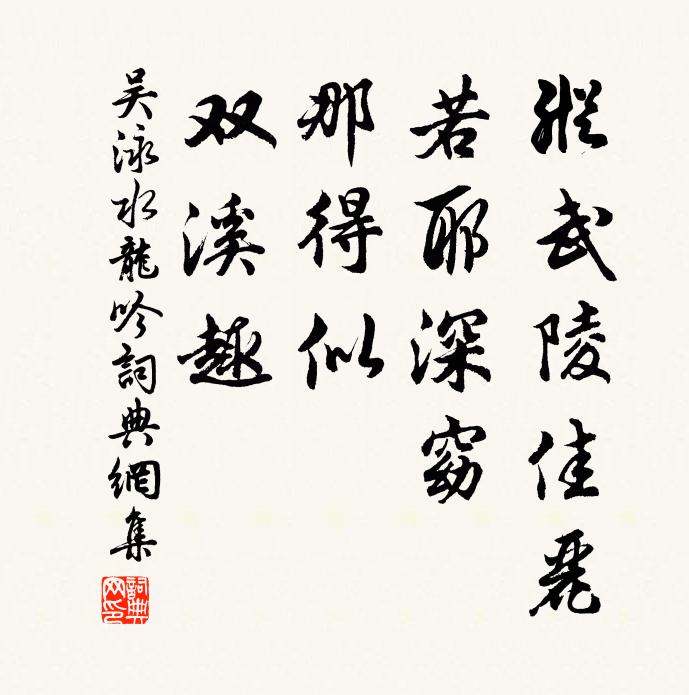 縱武陵佳麗
若耶深窈
那得似
双溪趣
吴泳水龍吟詞典網集
詞典網印